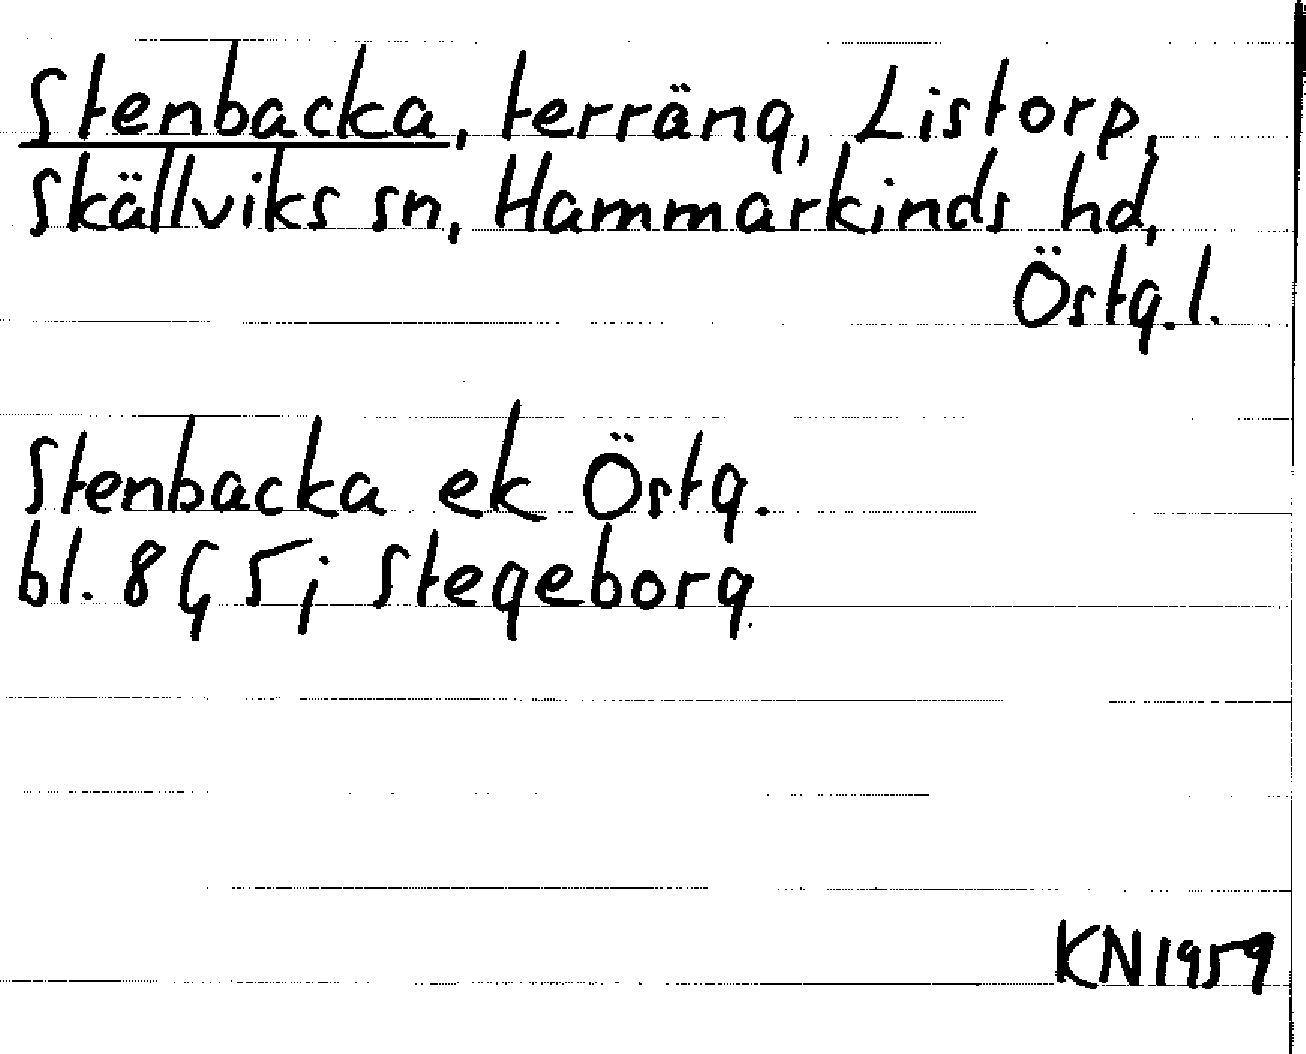 Stenbacka, terräng, Listorp,
Skällviks sn, Hammarkinds hd,
Östg. l.
Stenbacka ek Östg.
bl. 8G 5j Stegeborg
KN1959